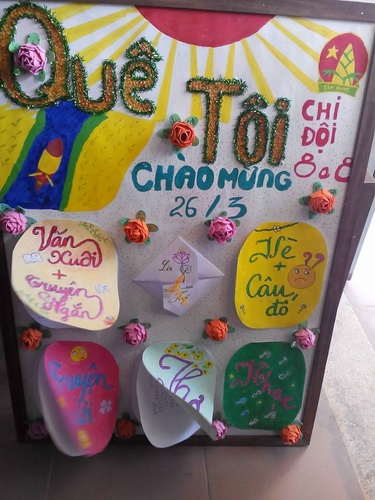 Quê Tôi
CHI
ĐỘI
8a8
CHÀO MỪNG
26/3
Văn
Xuôi
+
Truyện
Ngắn
Vè
+
Câu
đố
??
Truyện
Thơ
Nhạc